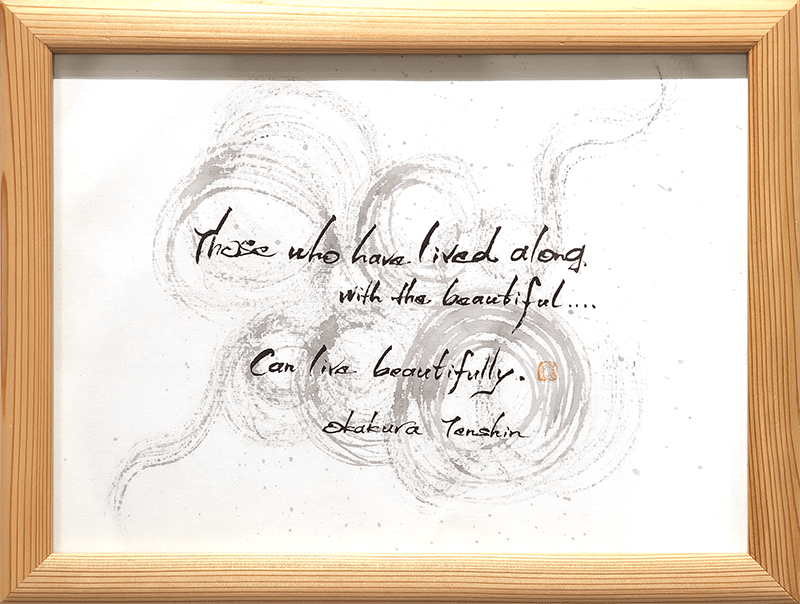 Those who have lived along.
with the beautiful....
Can live beautifully.
Okakura Tenshin